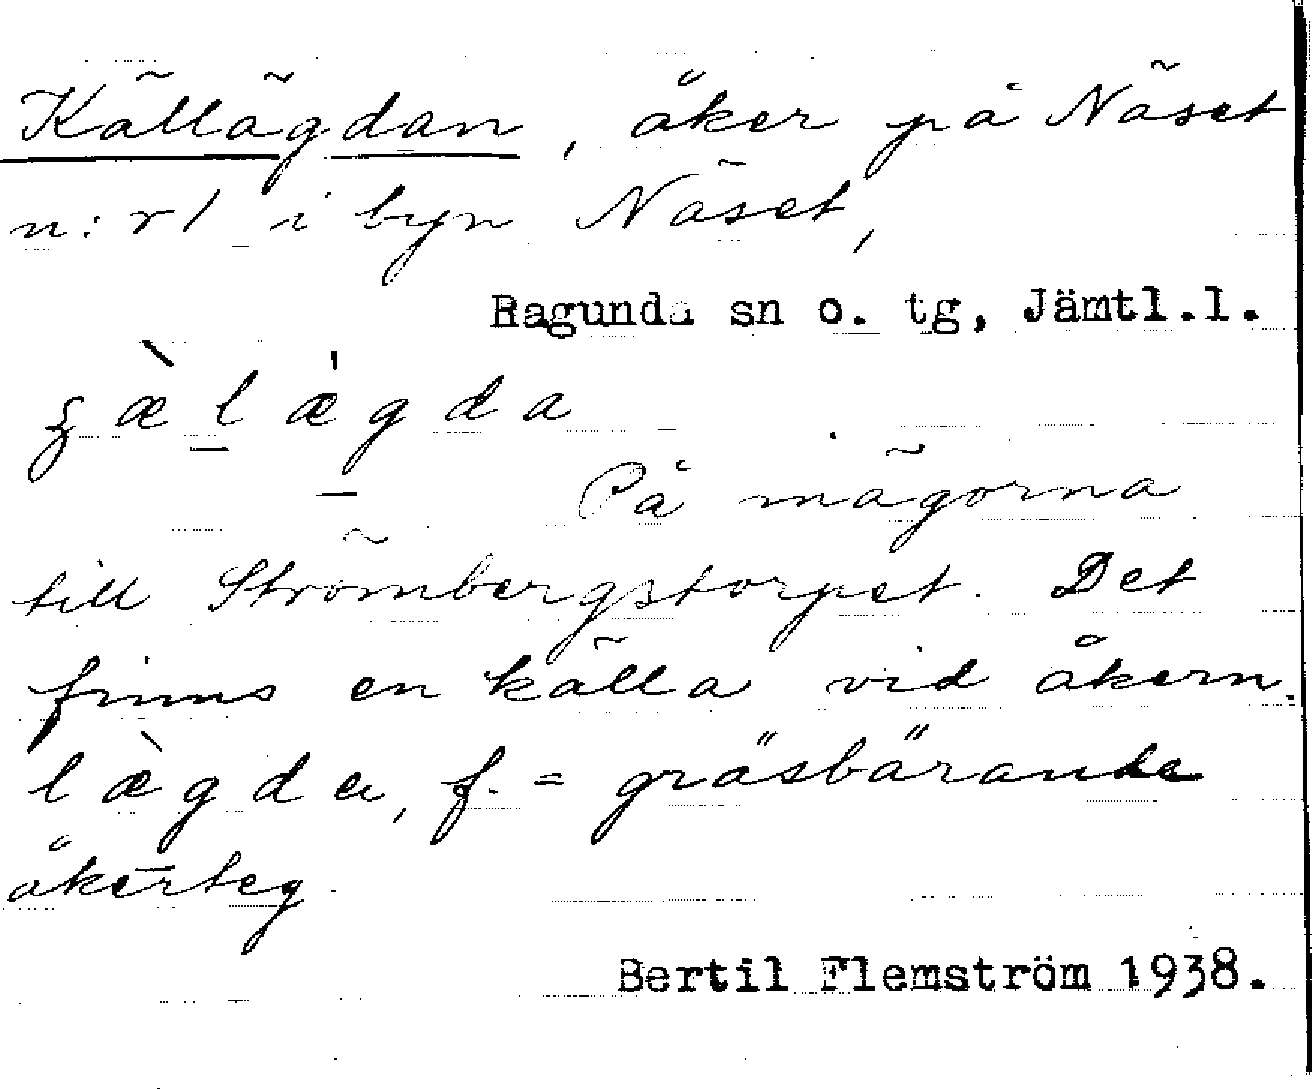 Källägdan, åker på Näset
n:r 1 i byn Näset,
Ragunda sn o. tg, Jämtl.l.
ʒæ̀lǽgda
På mägorna
till Strömbergstorpet. Det
finns en källa vid åkern.
læ̀gda, f. = gräsbärande
åkerteg.
Bertil Flemström 1938.